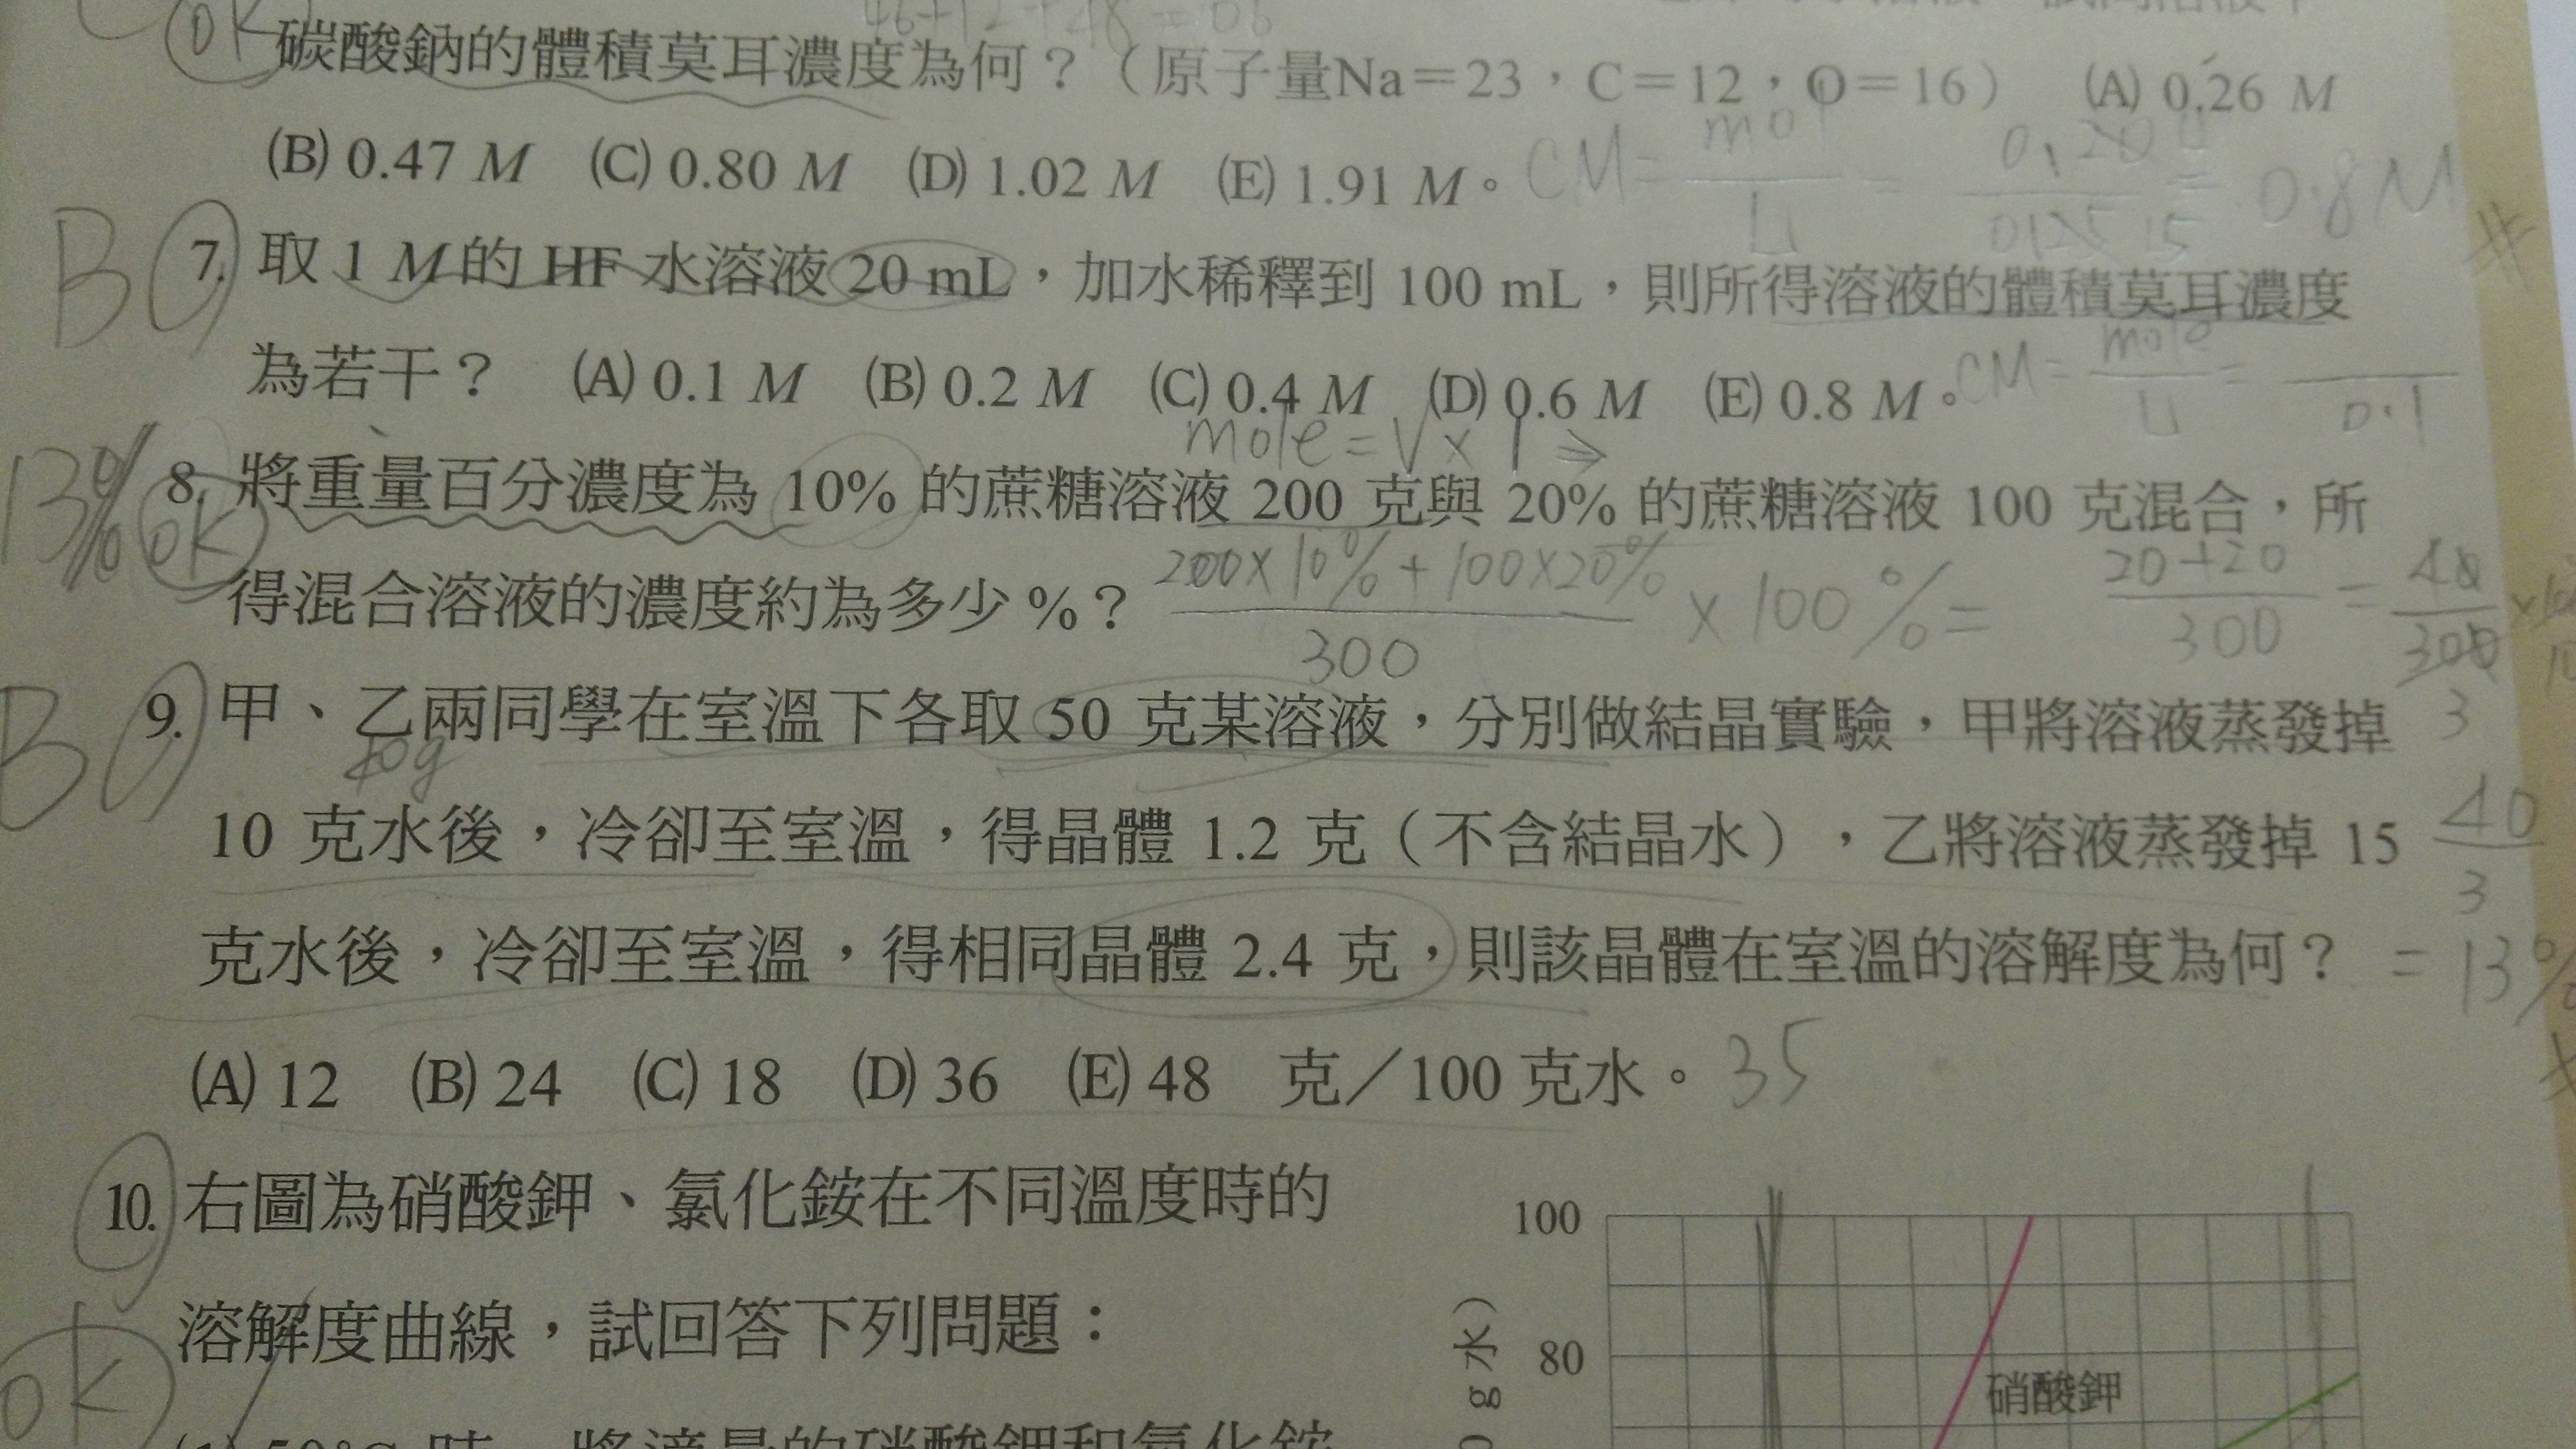 46+12+48=106
OK 碳酸鈉的體積莫耳濃度為何？（原子量Na＝23，C＝12，O＝16） (A) 0.26 M
(B) 0.47 M (C) 0.80 M (D) 1.02 M (E) 1.91 M。 CM = mol / L = = 0.8M
B 7. 取 1 M的 HF 水溶液 20 mL，加水稀釋到 100 mL，則所得溶液的體積莫耳濃度
為若干？ (A) 0.1 M (B) 0.2 M (C) 0.4 M (D) 0.6 M (E) 0.8 M。 CM = mole / L = / 0.1
mole = V × 1 ⇒
13% OK 8. 將重量百分濃度為 10% 的蔗糖溶液 200 克與 20% 的蔗糖溶液 100 克混合，所
得混合溶液的濃度約為多少 %？ 200×10%+100×20% / 300 ×100% = 20+20 / 300 = 40 / 300
B 9. 甲、乙兩同學在室溫下各取 50 克某溶液，分別做結晶實驗，甲將溶液蒸發掉 3
10 克水後，冷卻至室溫，得晶體 1.2 克（不含結晶水），乙將溶液蒸發掉 15 40 / 3
克水後，冷卻至室溫，得相同晶體 2.4 克，則該晶體在室溫的溶解度為何？ = 13%
(A) 12 (B) 24 (C) 18 (D) 36 (E) 48 克／100 克水。 35
10. 右圖為硝酸鉀、氯化銨在不同溫度時的
溶解度曲線，試回答下列問題：
OK
100
80
g水）
硝酸鉀